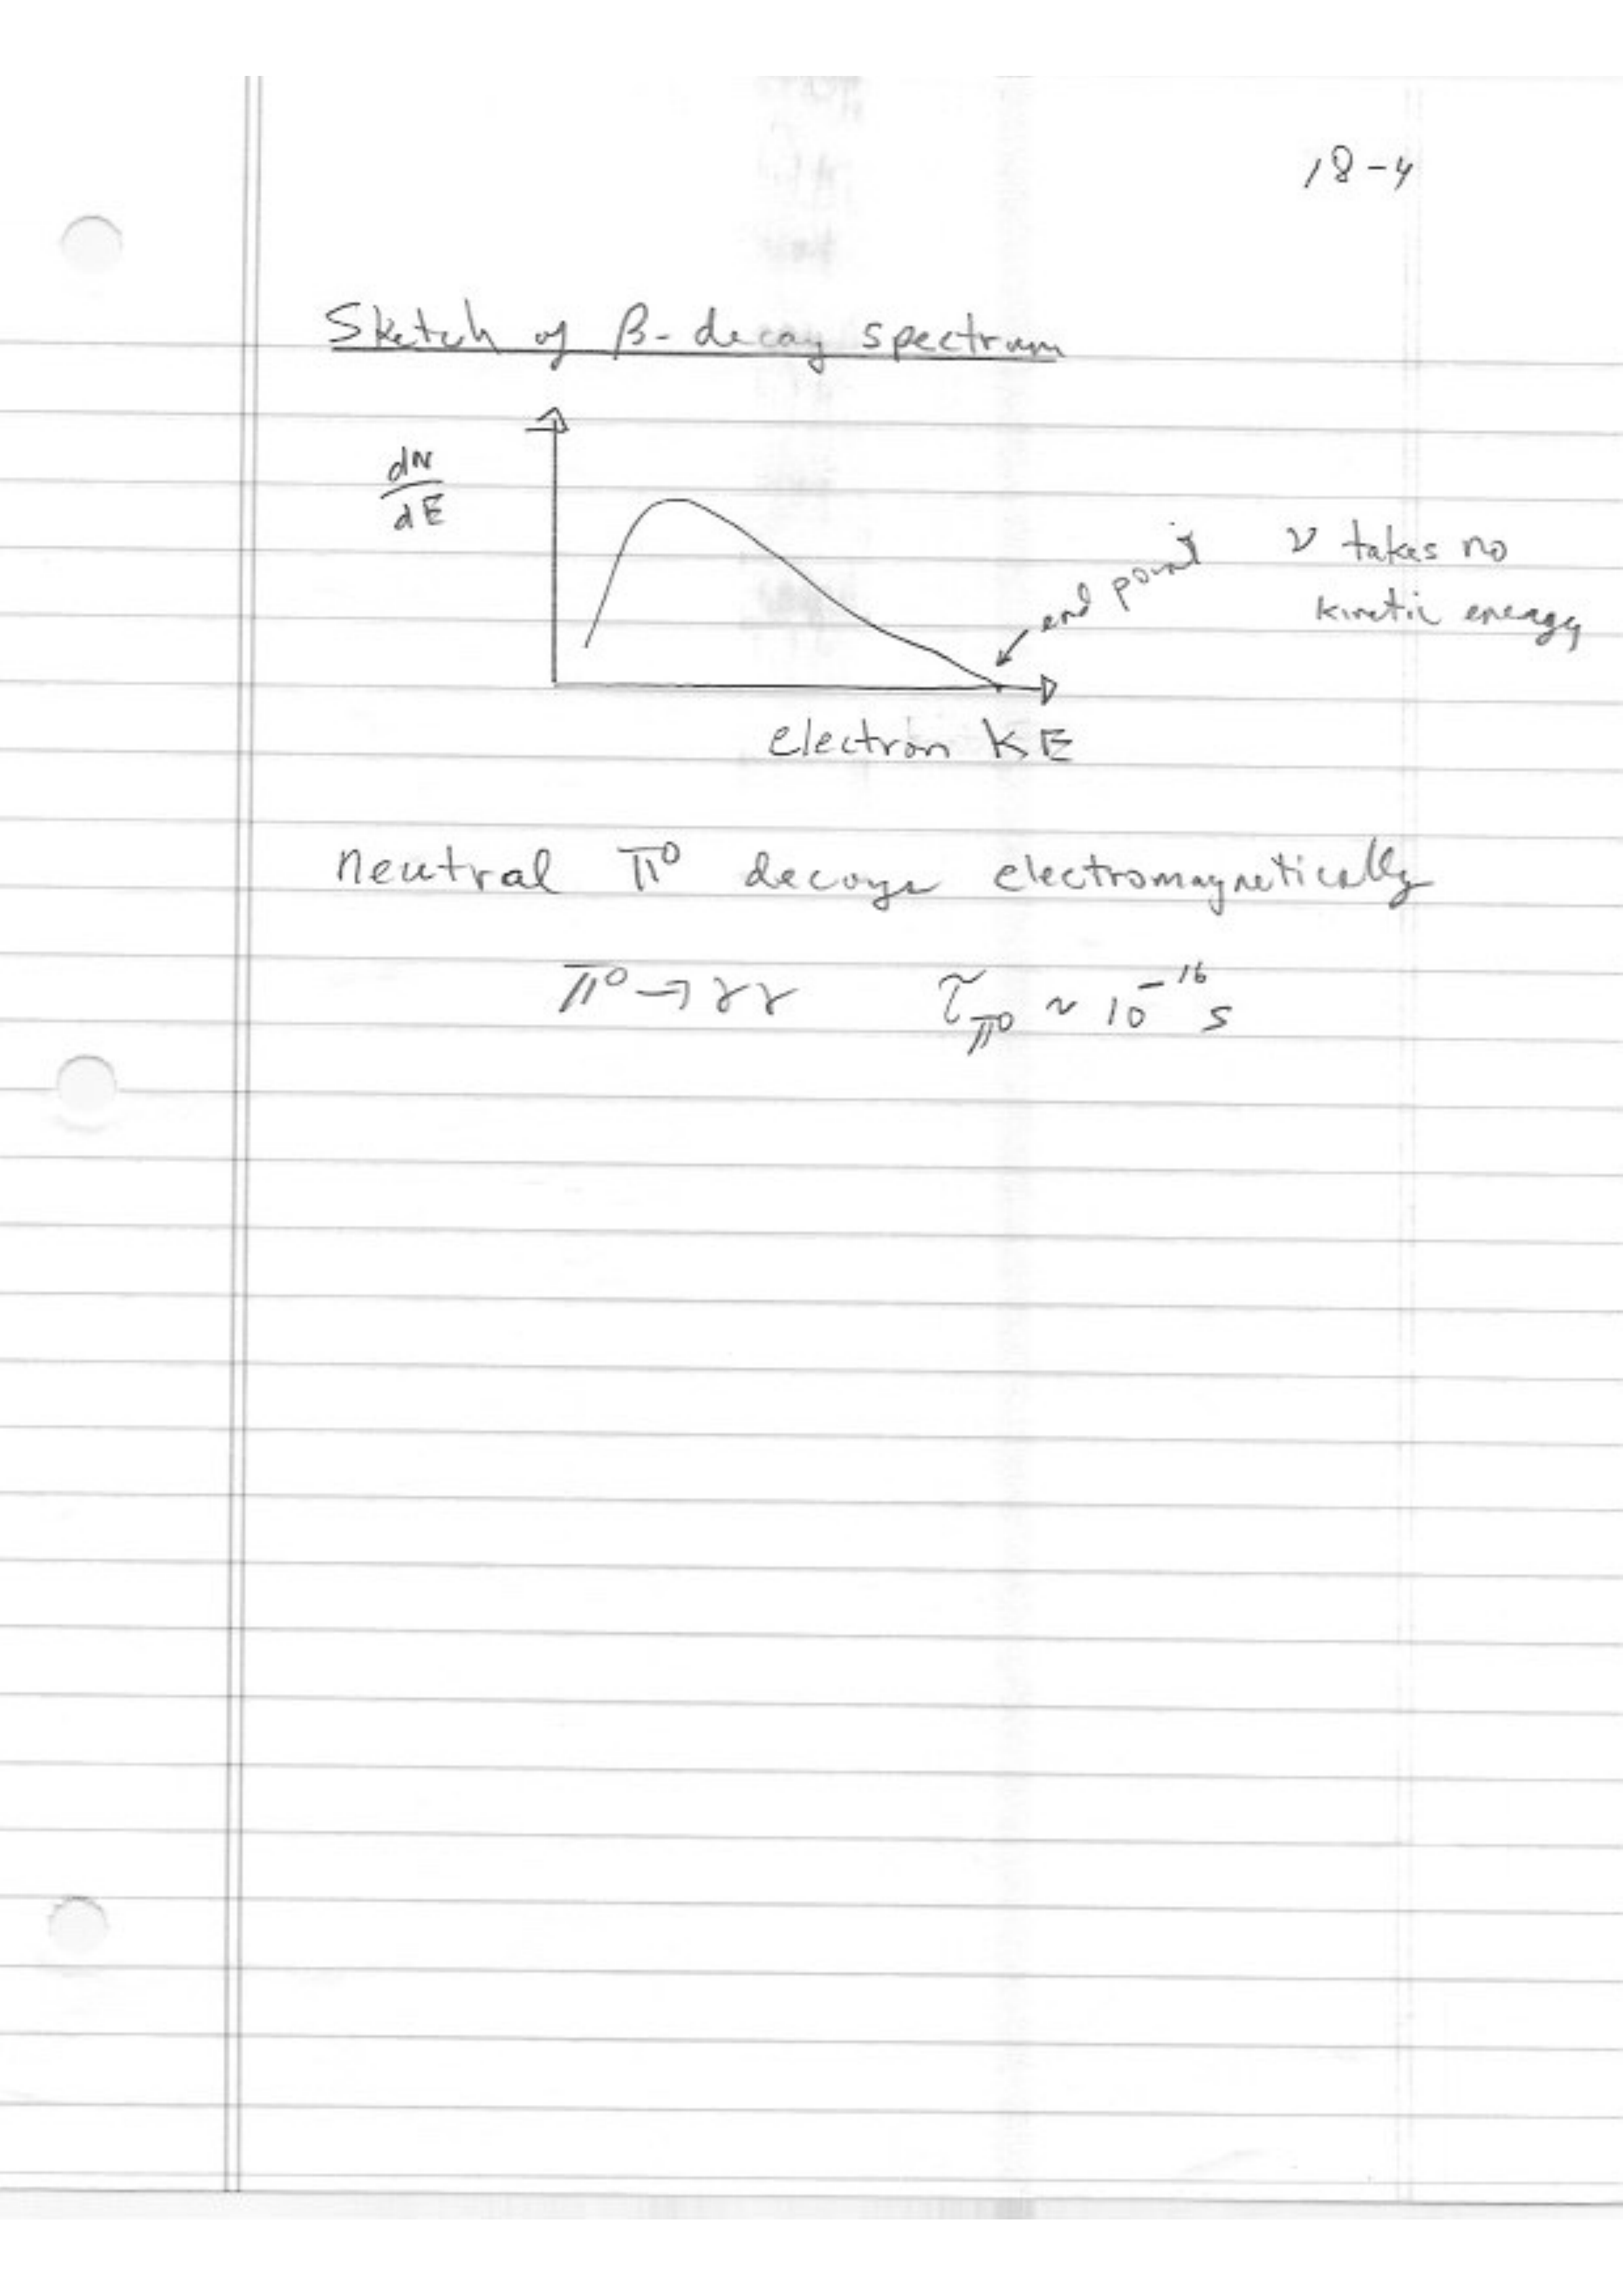 18-4
Sketch of β-decay spectrum
dN
dE
end point
ν takes no
kinetic energy
electron KE
neutral π⁰ decays electromagnetically
π⁰→γγ τ_π⁰ ~ 10⁻¹⁶ s